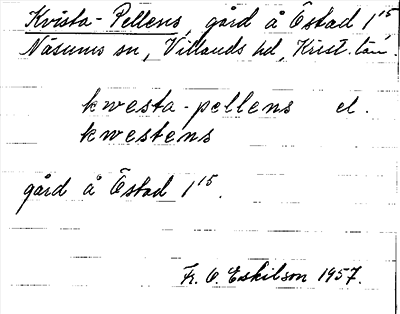 Kvista-Pellens, gård å Östad 1¹⁵
Näsums sn, Villands hd, Krist. län.
kwesta-pellens el.
kwestens
gård å Östad 1¹⁵.
Fr. O. Eskilson 1957.